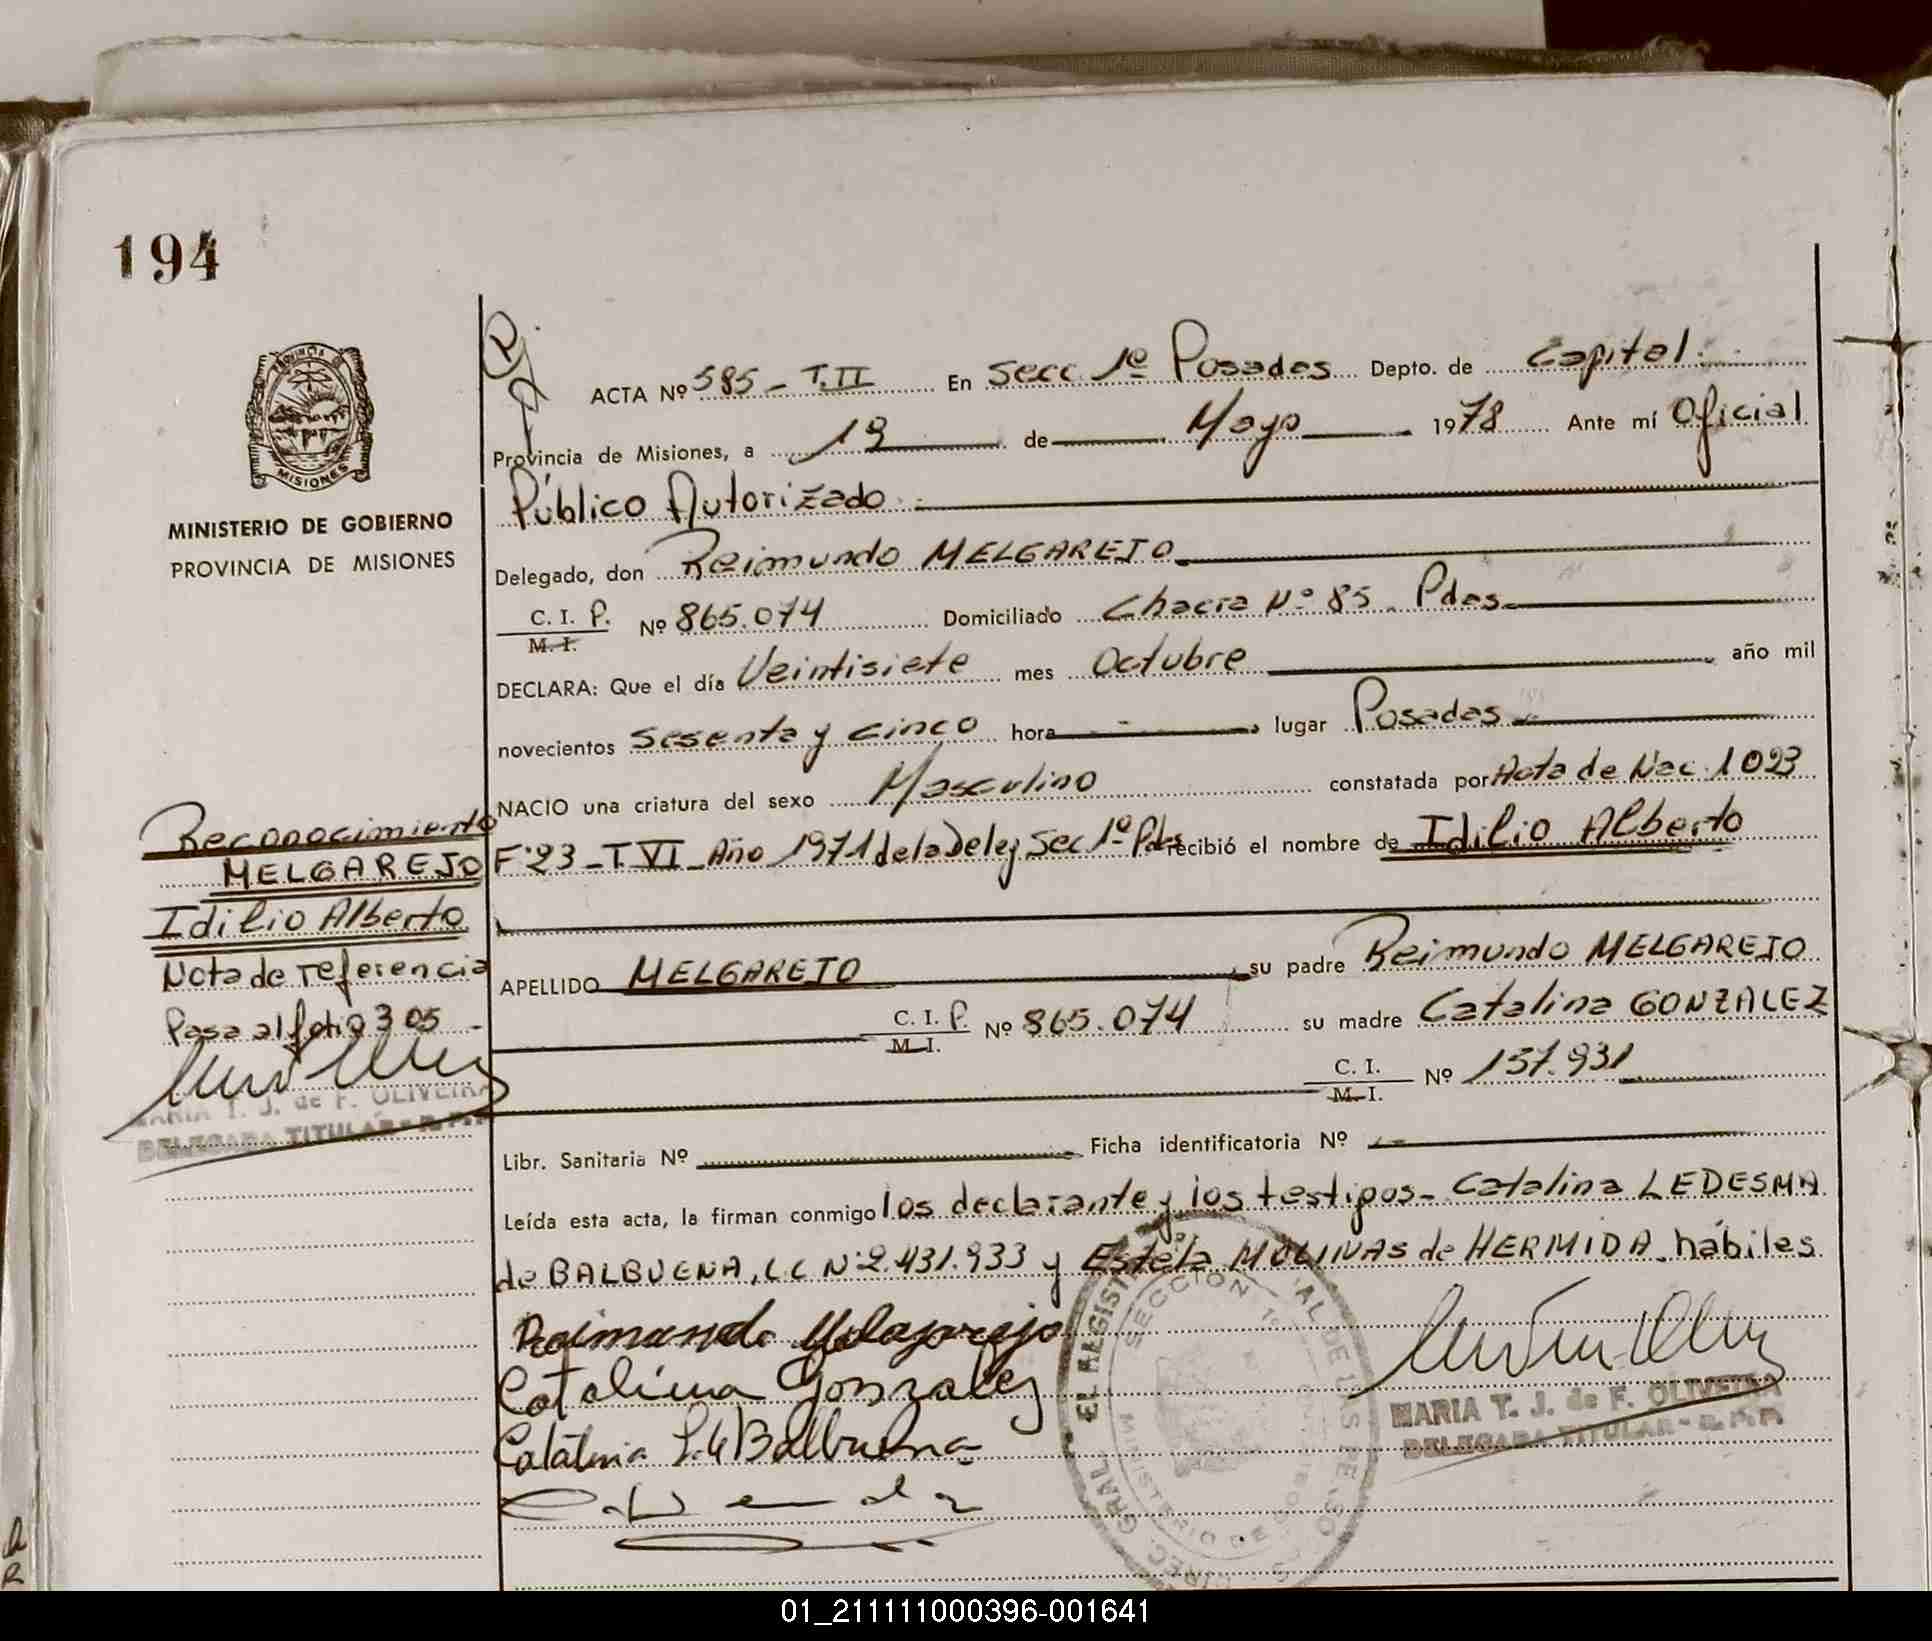 194
PROVINCIA DE
MISIONES
MINISTERIO DE GOBIERNO
PROVINCIA DE MISIONES
ACTA Nº 585 - T.II En Secc 1º Posadas Depto. de Capital.
Provincia de Misiones, a 19 de Mayo 1978 Ante mí Oficial
Público Autorizado
Delegado, don Reimundo MELGAREJO
C. I. P. Nº 865.074 Domiciliado Chacra Nº 85 Pdas.
M. I.
DECLARA: Que el día Veintisiete mes Octubre año mil
novecientos Sesenta y cinco hora lugar Posadas
NACIO una criatura del sexo Masculino constatada por Acta de Nac. 1023
Fº23 - T.VI - Año 1971 de la Deleg Sec 1º Pdas recibió el nombre de Idilio Alberto
APELLIDO MELGAREJO su padre Reimundo MELGAREJO
C. I. P. Nº 865.074 su madre Catalina GONZALEZ
M. I.
C. I. Nº 157.931
M. I.
Libr. Sanitaria Nº Ficha identificatoria Nº
Leída esta acta, la firman conmigo los declarante y los testigos - Catalina LEDESMA
de BALBUENA, LC Nº 2.431.933 y Estela MOLINAS de HERMIDA hábiles
Raimundo Melgarejo
Catalina Gonzalez
Catalina L. de Balbuena
MARIA T. J. de F. OLIVEIRA
DELEGADA TITULAR - R. P. P.
Reconocimiento
MELGAREJO
Idilio Alberto
Nota de referencia
Pasa al folio 305
MARIA T. J. de F. OLIVEIRA
DELEGADA TITULAR - R. P. P.
SECCION 1º
MINISTERIO DE GOBIERNO
01_211111000396-001641